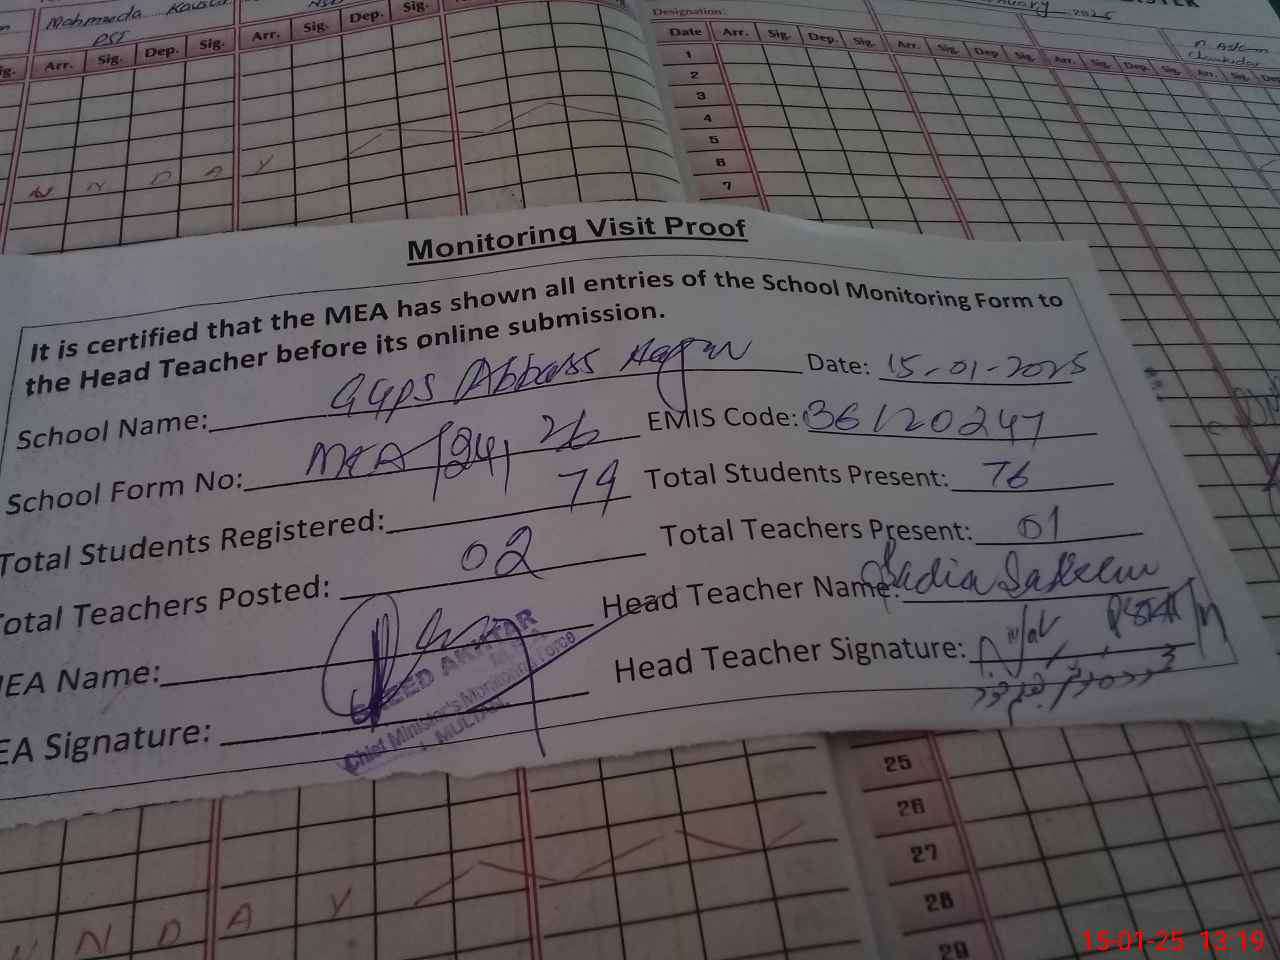 Mahmooda
PST
Sig. Arr. Sig. Dep. Sig. Arr. Sig. Dep. Sig.
Designation
January 2025
Date Arr. Sig. Dep. Sig. Arr. Sig. Dep. Sig. Arr. Sig. Dep. Sig. Arr. Sig.
1
2
3
4
5
6
7
N N D A Y
Monitoring Visit Proof
It is certified that the MEA has shown all entries of the School Monitoring Form to
the Head Teacher before its online submission.
School Name: GGPS Abbass Date: 15-01-2025
School Form No: MEA 26 EMIS Code: 36120247
Total Students Registered: 79 Total Students Present: 76
Total Teachers Posted: 02 Total Teachers Present: 01
MEA Name: Head Teacher Name: Sadia
MEA Signature: Head Teacher Signature:
SAEED AKHTAR
Chief Minister's Monitoring Force
MULTAN
25
26
27
28
29
N D A Y
15-01-25 13:19